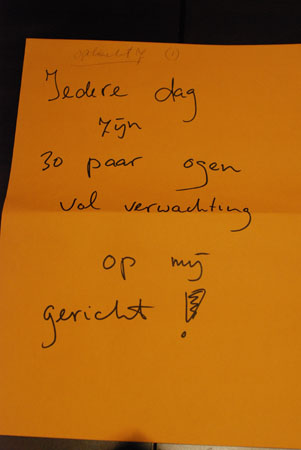 (1)
Iedere dag
zijn
30 paar ogen
vol verwachting
op mij
gericht !